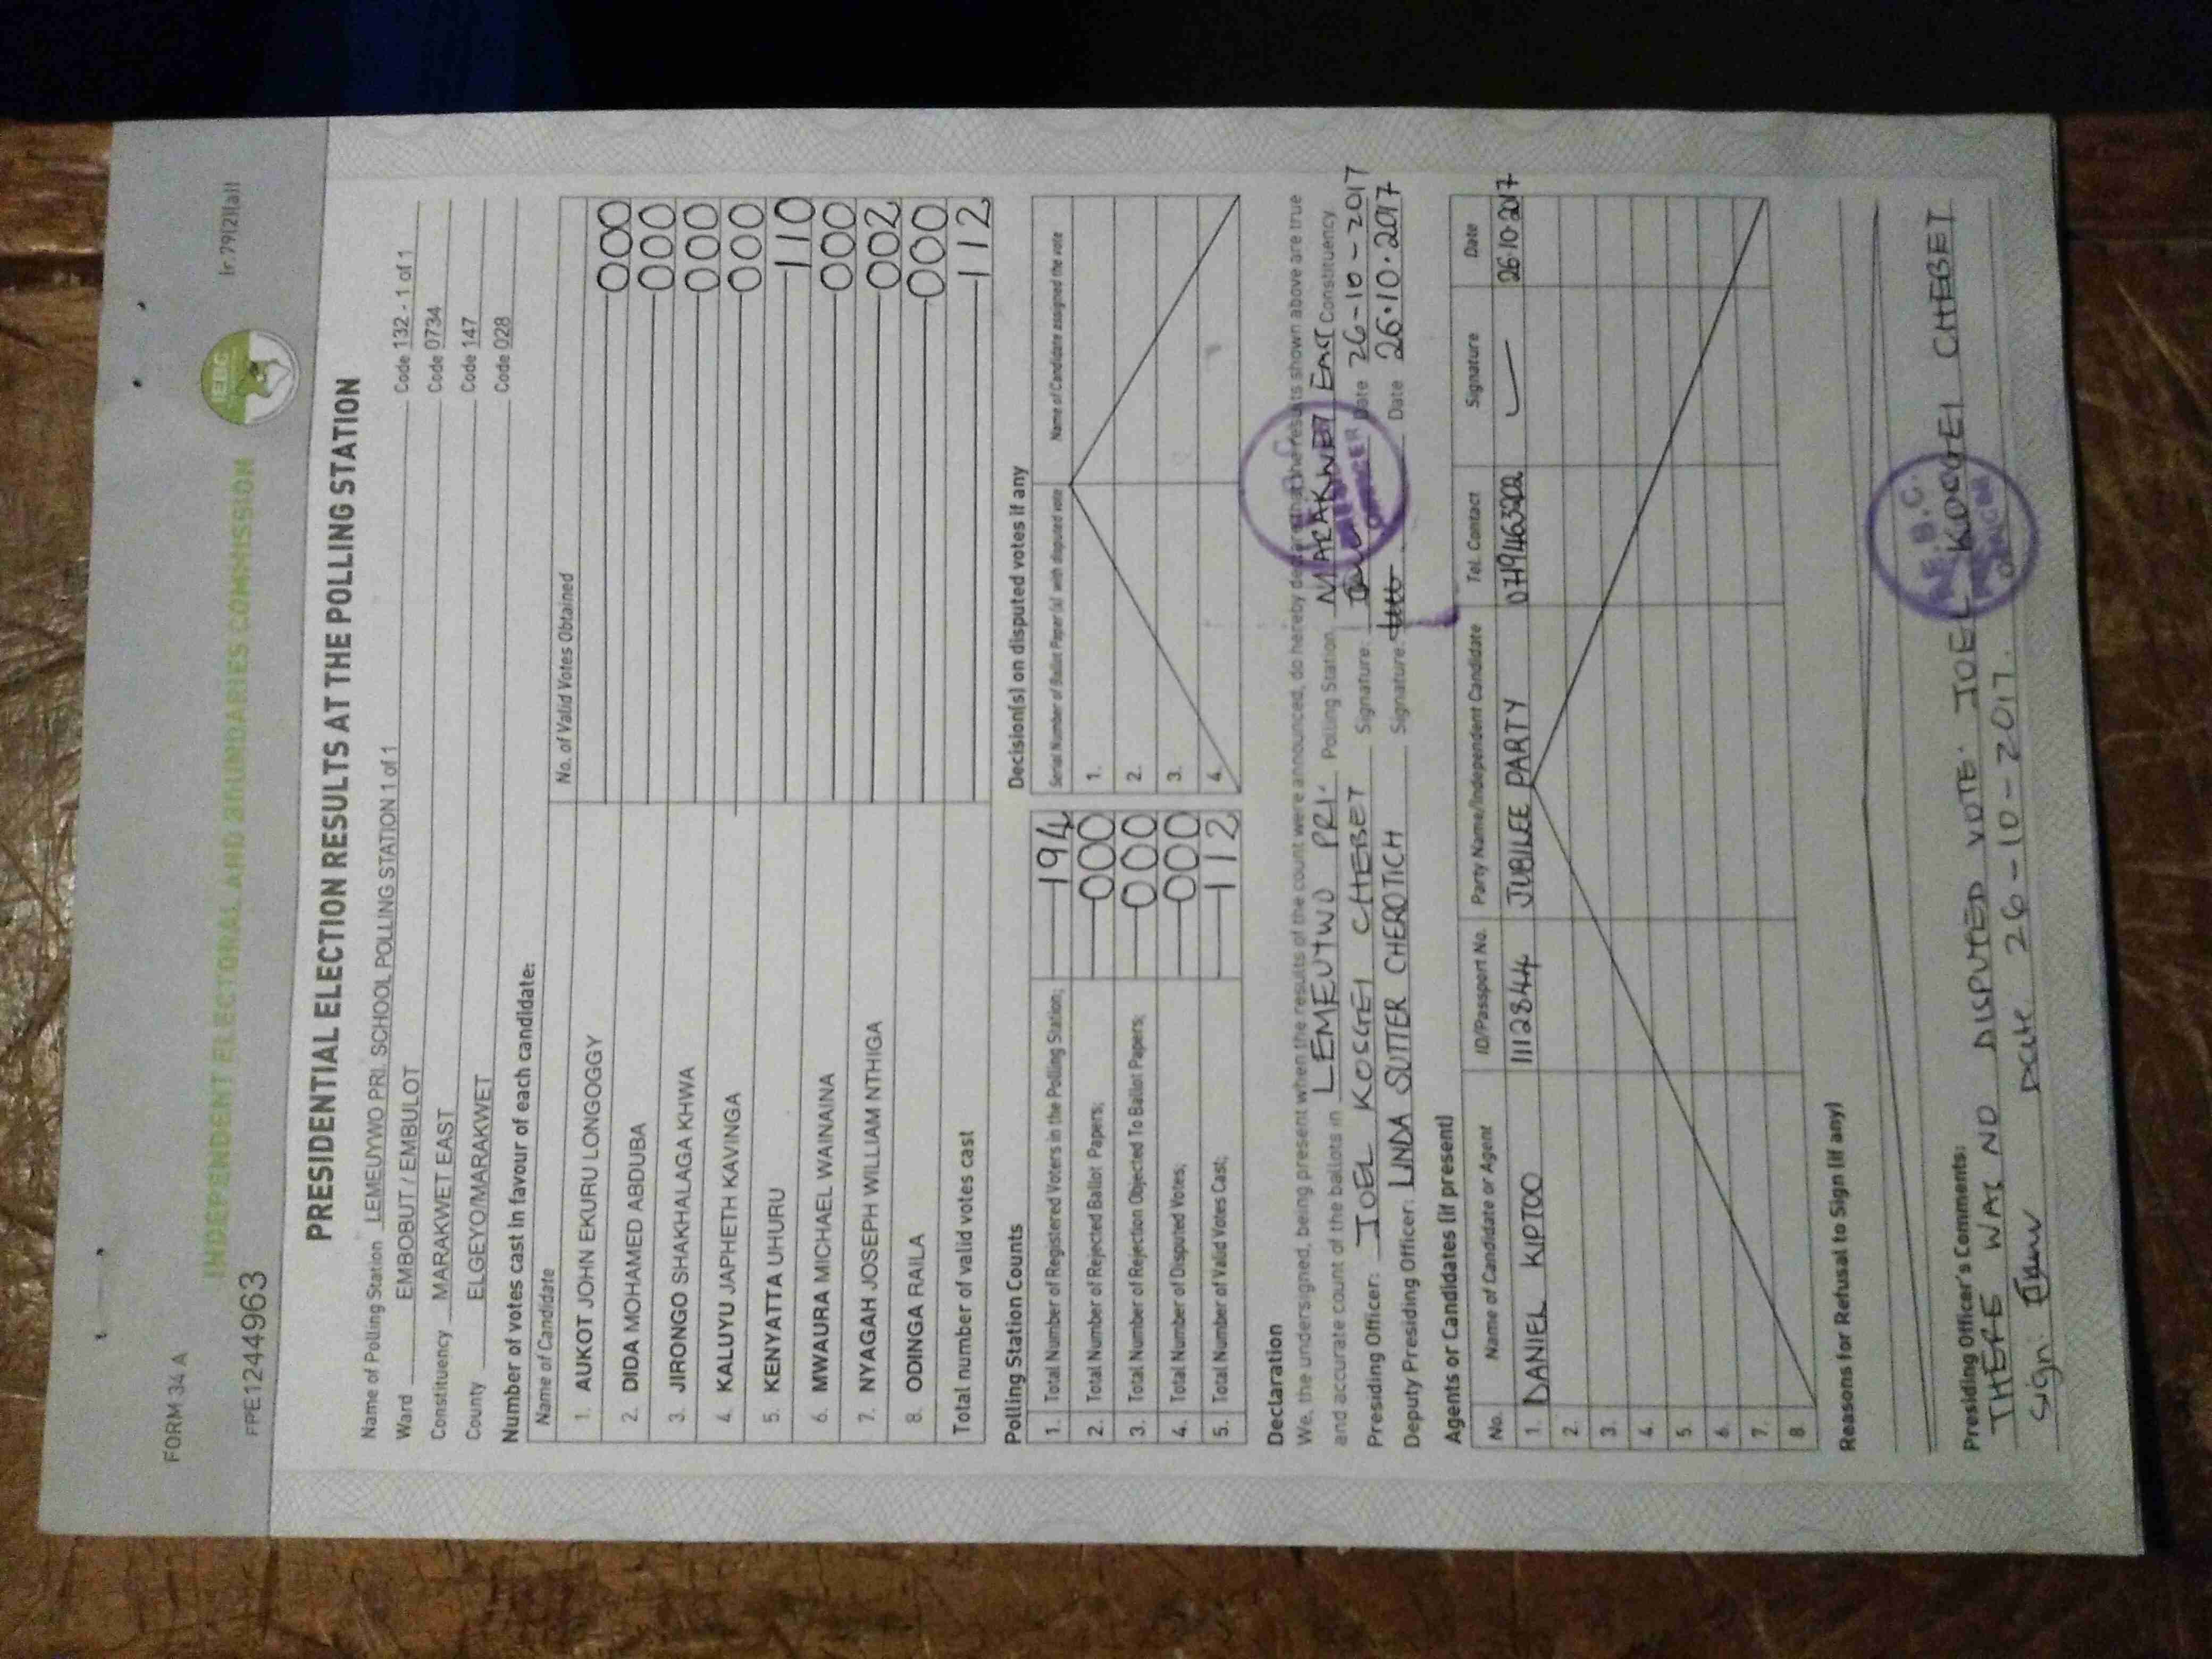 FORM 34 A
(r.79(2)(a))
INDEPENDENT ELECTORAL AND BOUNDARIES COMMISSION
IEBC
FPE1244963
PRESIDENTIAL ELECTION RESULTS AT THE POLLING STATION
Name of Polling Station LEMEUYWO PRI. SCHOOL POLLING STATION 1 of 1 Code 132 - 1 of 1
Ward EMBOBUT / EMBULOT Code 0734
Constituency MARAKWET EAST Code 147
County ELGEYO/MARAKWET Code 028
Number of votes cast in favour of each candidate:
Name of Candidate No. of Valid Votes Obtained
1. AUKOT JOHN EKURU LONGOGGY 000
2. DIDA MOHAMED ABDUBA 000
3. JIRONGO SHAKHALAGA KHWA 000
4. KALUYU JAPHETH KAVINGA 000
5. KENYATTA UHURU 110
6. MWAURA MICHAEL WAINAINA 000
7. NYAGAH JOSEPH WILLIAM NTHIGA 002
8. ODINGA RAILA 000
Total number of valid votes cast 112
Polling Station Counts
1. Total Number of Registered Voters in the Polling Station; 194
2. Total Number of Rejected Ballot Papers; 000
3. Total Number of Rejection Objected To Ballot Papers; 000
4. Total Number of Disputed Votes; 000
5. Total Number of Valid Votes Cast; 112
Decision(s) on disputed votes if any
Serial Number of Ballot Paper(s) with disputed vote Name of Candidate assigned the vote
1.
2.
3.
4.
Declaration
We, the undersigned, being present when the results of the count were announced, do hereby declare that the results shown above are true
and accurate count of the ballots in LEMEUYWO PRI. Polling Station MARAKWET EAST Constituency.
Presiding Officer: JOEL KOSGEI CHEBET Signature: Date 26-10-2017
Deputy Presiding Officer: LINDA SUTTER CHEROTICH Signature: Date 26.10.2017
Agents or Candidates (if present)
No. Name of Candidate or Agent ID/Passport No. Party Name/Independent Candidate Tel. Contact Signature Date
1. DANIEL KIPTOO 11112844 JUBILEE PARTY 26.10.2017
2.
3.
4.
5.
6.
7.
8.
Reasons for Refusal to Sign (if any)
Presiding Officer's Comments:
THERE WAS NO DISPUTED VOTE. JOEL KOSGEI CHEBET
Sign: Date 26-10-2017.
I.E.B.C.